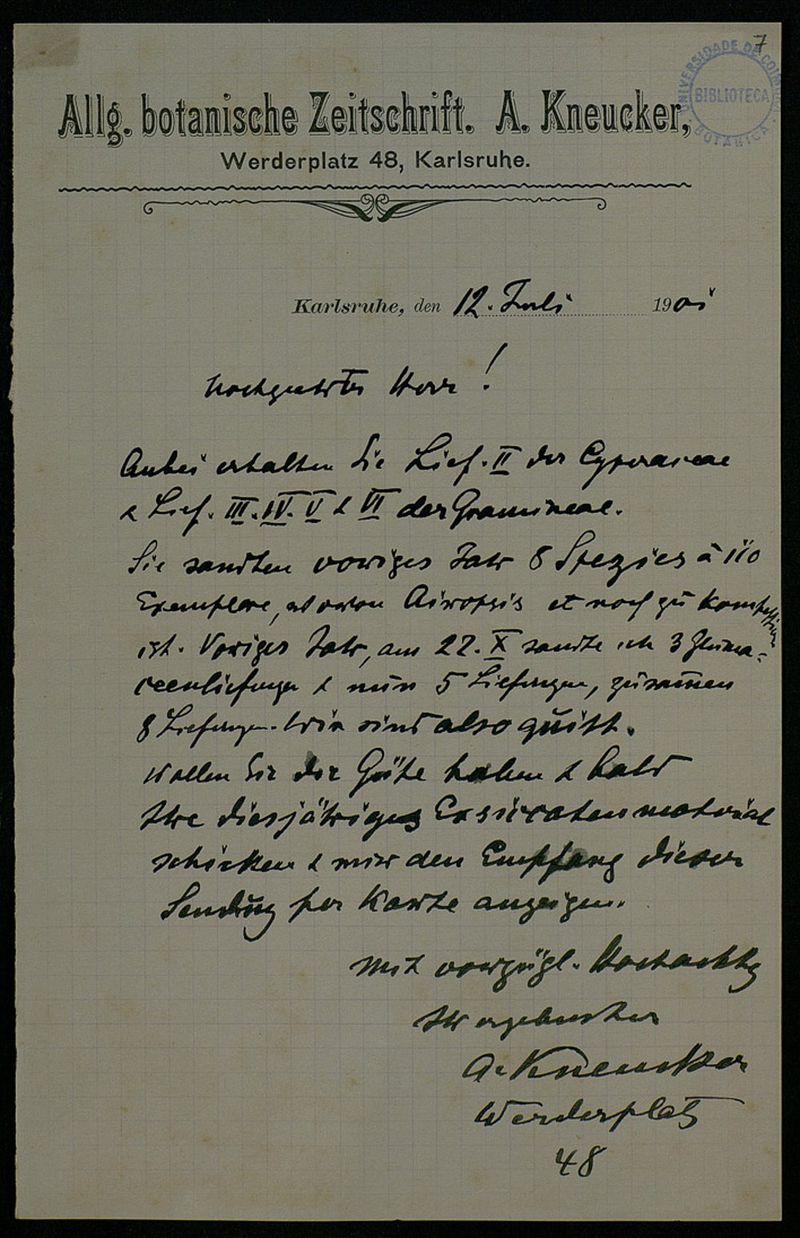 7
UNIVERSIDADE DE COIMBRA
BIBLIOTECA
BOTANICA
Allg. botanische Zeitschrift. A. Kneucker,
Werderplatz 48, Karlsruhe.
Karlsruhe, den 12. Juli 1901
Hochgeehrter Herr!
Anbei erhalten Sie Lief. II der Cyperaceae
& Lief. III. IV. V & VI der Gramineae.
Sie sandten voriges Jahr 8 Spezies à 110
Exemplare, Airopsis noch zu
ist. Voriges Jahr, am 22. X sandte ich 3 Gluma-
ceenliefergen & nun 5 Liefergen, zusammen
8 Liefergen. Wir sind also quitt.
Wollen Sie die Güte haben & bald
Ihre diesjähriges Exsiccatenmaterial
schicken & mir den Empfang dieser
Sendung per Karte anzeigen.
Mit vorzügl. Hochachtg
Ihr ergebenster
A. Kneucker
Werderplatz
48